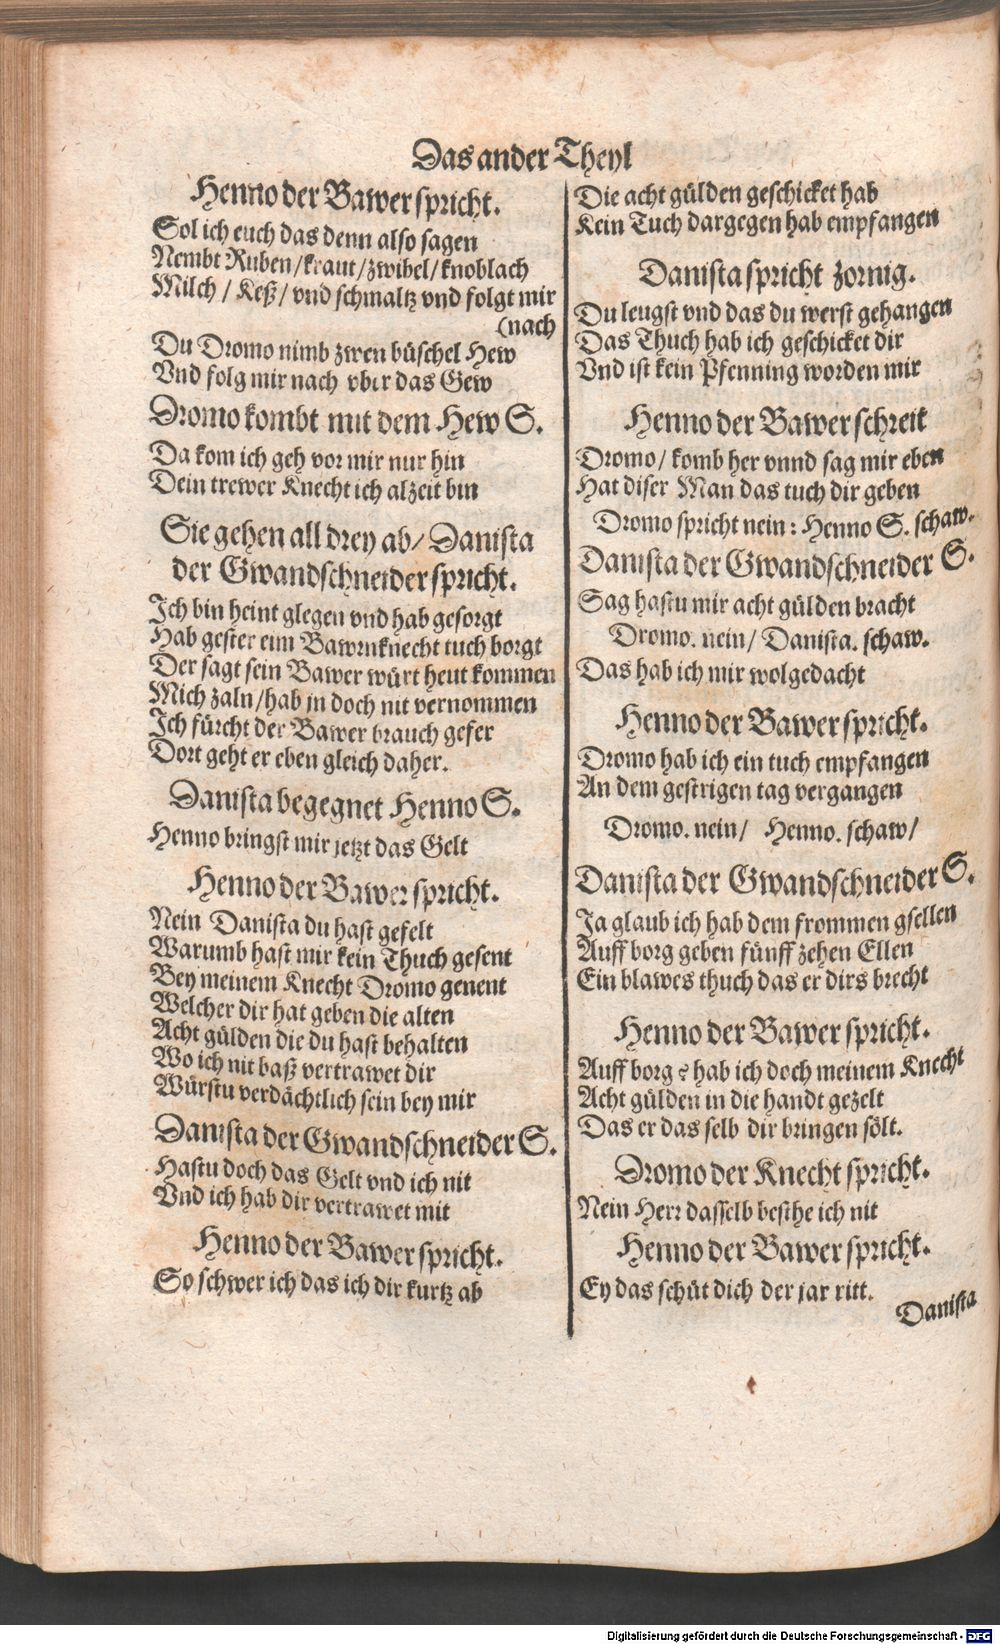 Das ander Theyl
Henno der Bawer spricht.
Sol ich euch das denn also sagen
Nembt Ruben/kraut/zwibel/knoblach
Milch/ Keß/ vnd schmaltz vnd folgt mir
(nach
Du Dromo nimb zwen büschel Hew
Vnd folg mir nach vber das Gew
Dromo kombt mit dem Hew S.
Da kom ich geh vor mir nur hin
Dein trewer Knecht ich alzeit bin
Sie gehen all drey ab/ Danista
der Gwandschneider spricht.
Ich bin heint glegen vnd hab gesorgt
Hab gester eim Bawrnknecht tuch borgt
Der sagt sein Bawer würt heut kommen
Mich zaln/hab in doch nit vernommen
Ich fürcht der Bawer brauch gefer
Dort geht er eben gleich daher.
Danista begegnet Henno S.
Henno bringst mir jetzt das Gelt
Henno der Bawer spricht.
Nein Danista du hast gefelt
Warumb hast mir kein Thuch gesent
Bey meinem Knecht Dromo genent
Welcher dir hat geben die alten
Acht gülden die du hast behalten
Wo ich nit baß vertrawet dir
Würstu verdächtlich sein bey mir
Danista der Gwandschneider S.
Hastu doch das Gelt vnd ich nit
Vnd ich hab dir vertrawet mit
Henno der Bawer spricht.
So schwer ich das ich dir kurtz ab
Die acht gülden geschicket hab
Kein Tuch dargegen hab empfangen
Danista spricht zornig.
Du leugst vnd das du werst gehangen
Das Thuch hab ich geschicket dir
Vnd ist kein Pfenning worden mir
Henno der Bawer schreit
Dromo/ komb her vnnd sag mir eben
Hat diser Man das tuch dir geben
Dromo spricht nein: Henno S. schaw.
Danista der Gwandschneider S.
Sag hastu mir acht gülden bracht
Dromo. nein/ Danista. schaw.
Das hab ich mir wolgedacht
Henno der Bawer spricht.
Dromo hab ich ein tuch empfangen
An dem gestrigen tag vergangen
Dromo. nein/ Henno. schaw/
Danista der Gwandschneider S.
Ja glaub ich hab dem frommen gsellen
Auff borg geben fünff zehen Ellen
Ein blawes thuch das er dirs brecht
Henno der Bawer spricht.
Auff borg? hab ich doch meinem Knecht
Acht gülden in die handt gezelt
Das er das selb dir bringen sölt.
Dromo der Knecht spricht.
Nein Herr dasselb besthe ich nit
Henno der Bawer spricht.
Ey das schüt dich der jar ritt.
Danista
Digitalisierung gefördert durch die Deutsche Forschungsgemeinschaft - DFG